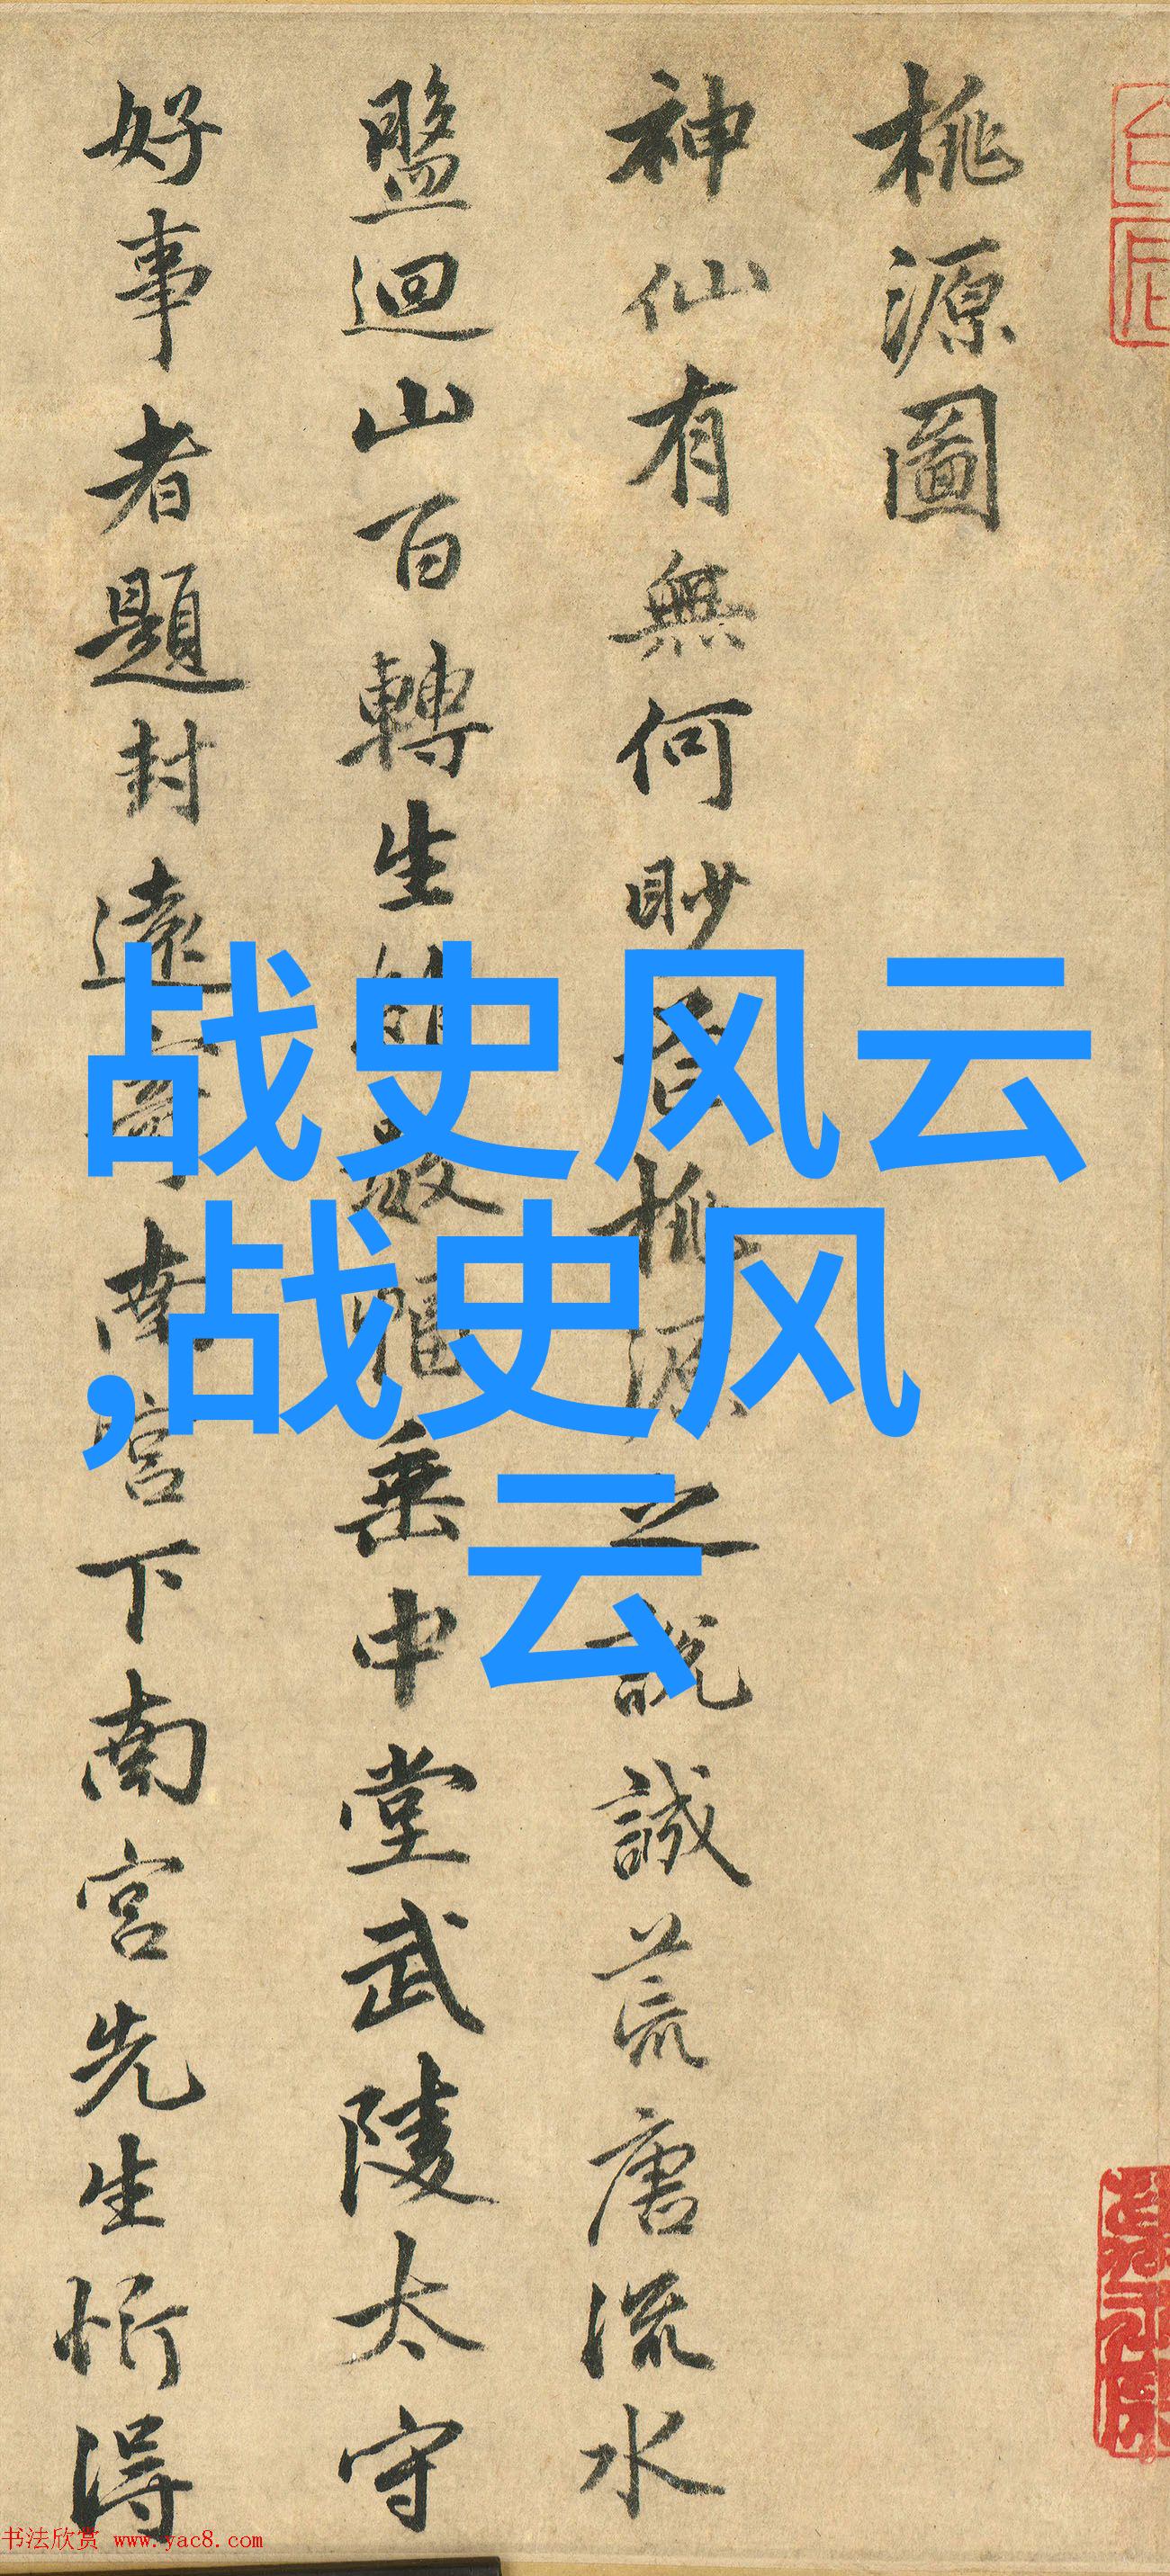 桃源圖
神仙有無何眇桃源之說誠荒唐流水
盤迴山百轉生綃數幅垂中堂武陵太守
好事者題封遠寄南宮下南宮先生忻得
战史风云
,战史风
云
书法欣赏 www.yac8.com